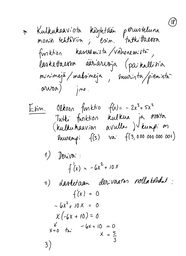 18
Kulkukaaviota käytetään perusteluna
monin tehtäviin, esim. tutkittaessa
funktion kasvamista/vähenemistä
laskettaessa ääriarvoja (paikallisia
minimejä/maksimeja, suurinta/pienintä
arvoa) jne.
Esim. Olkoon funktio f(x) = -2x³ + 5x²
Tutki funktion kulkua ja
(kulkukaavion avulla) kumpi on
suurempi f(3) vai
1) Derivoi:
f'(x) = -6x² + 10x
2) Lasketaan derivaatan nollakohdat:
f'(x) = 0
-6x² + 10x = 0
x(-6x + 10) = 0
x = 0 tai -6x + 10 = 0
x = 5/3
3)